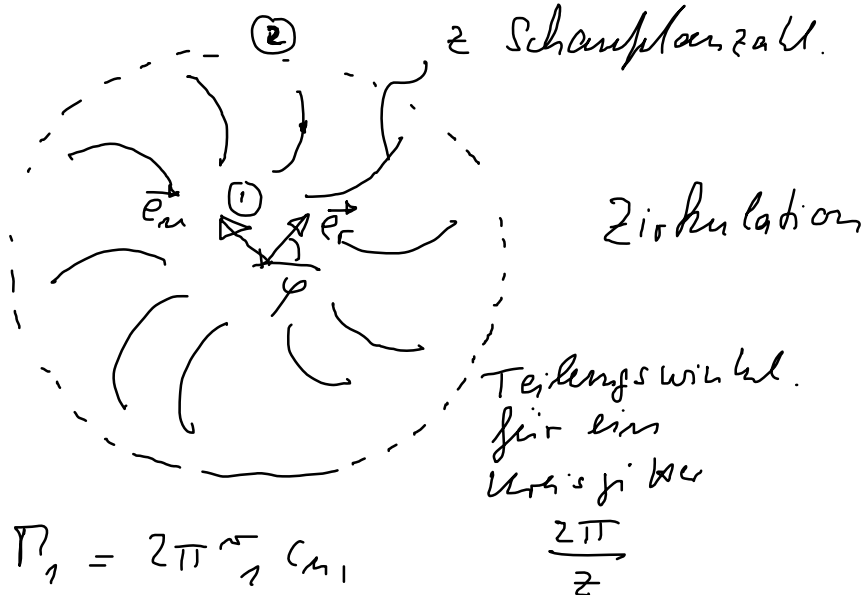 ②
z Schaufelanzahl.
①
e_u
e_r
φ
Zirkulation
Teilungswinkel.
für ein
Kreisgitter
2π
z
Γ₁ = 2π r₁ c_u1